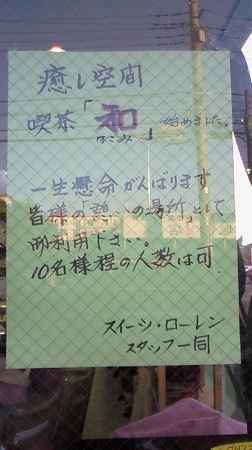 癒し空間
喫茶「和」始めました。
なごみ
一生懸命がんばります
皆様の「憩いの場所」として
御利用下さい。
10名様程の人数は可
スイーツ・ローレン
スタッフ一同